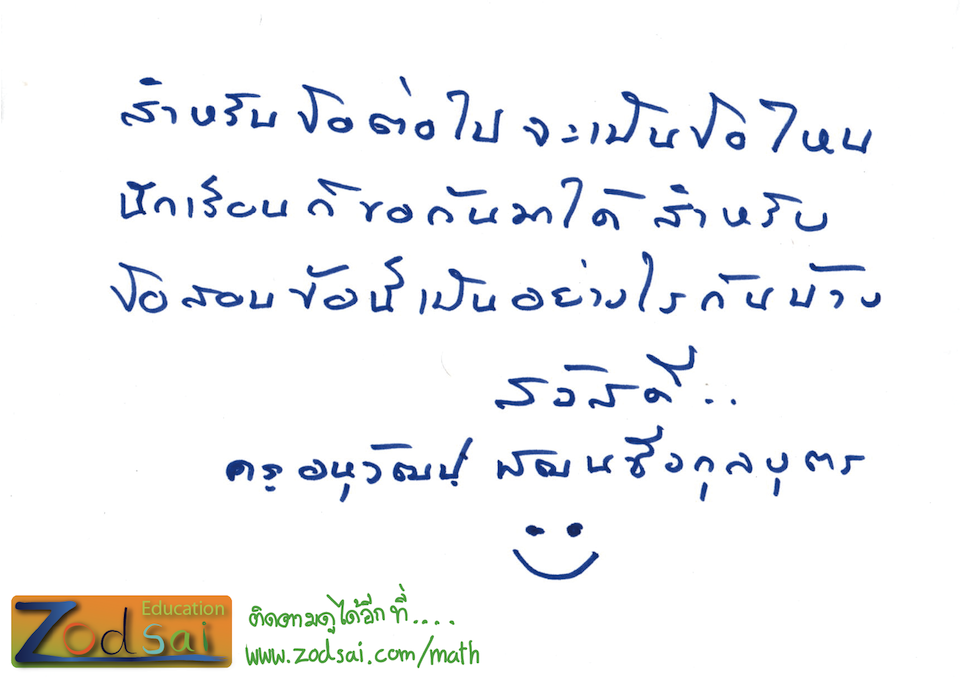 สำหรับข้อต่อไป จะเป็นข้อไหน
นักเรียนก็ขอกันมาได้ สำหรับ
ข้อสอบข้อนี้เป็นอย่างไรกันบ้าง
สวัสดี..
ครู อนุวัฒน์ พัฒนเชื้อกุลบุตร
Education
Zodsai
ติดตามดูได้อีกที่....
www.zodsai.com/math